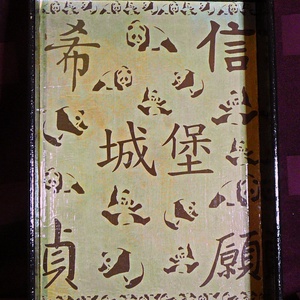 希 信
城堡
貞 願